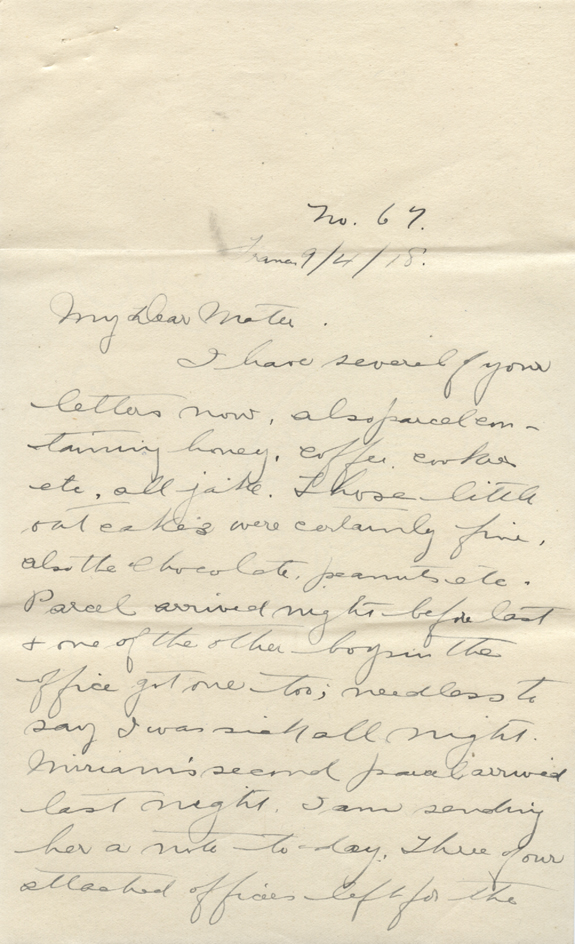 No. 67.
France 9/4/18.
My Dear Mater.
I have several of your
letters now, also parcel con-
taining honey, coffee, cookies
etc, all jake. Those little
oat cakes were certainly fine,
also the chocolate, peanuts etc.
Parcel arrived night before last
& one of the other boys in the
office got one too; needless to
say I was sick all night.
Miriam's second parcel arrived
last night. I am sending
her a note to-day. Three of our
attached officers left for the